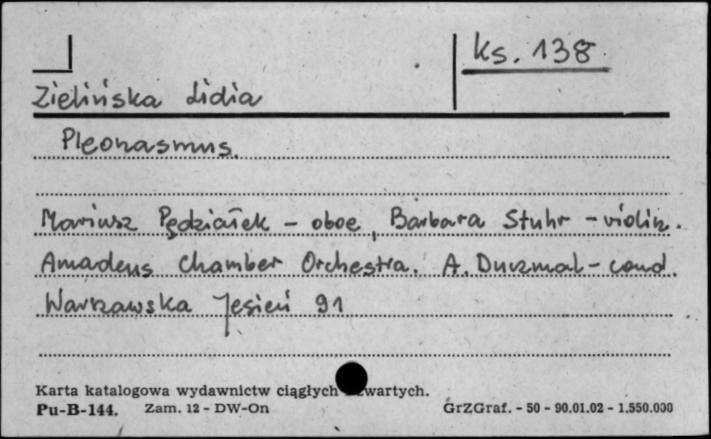 ks. 138
Zielińska Lidia
Pleonasmus.
Mariusz Pędziałek - oboe, Barbara Stuhr - violin.
Amadeus Chamber Orchestra. A. Duczmal - cond.
Warszawska Jesień 91
Karta katalogowa wydawnictw ciągłych
Pu-B-144. Zam. 12 - DW-On GrZGraf. - 50 - 90.01.02 - 1.550.000